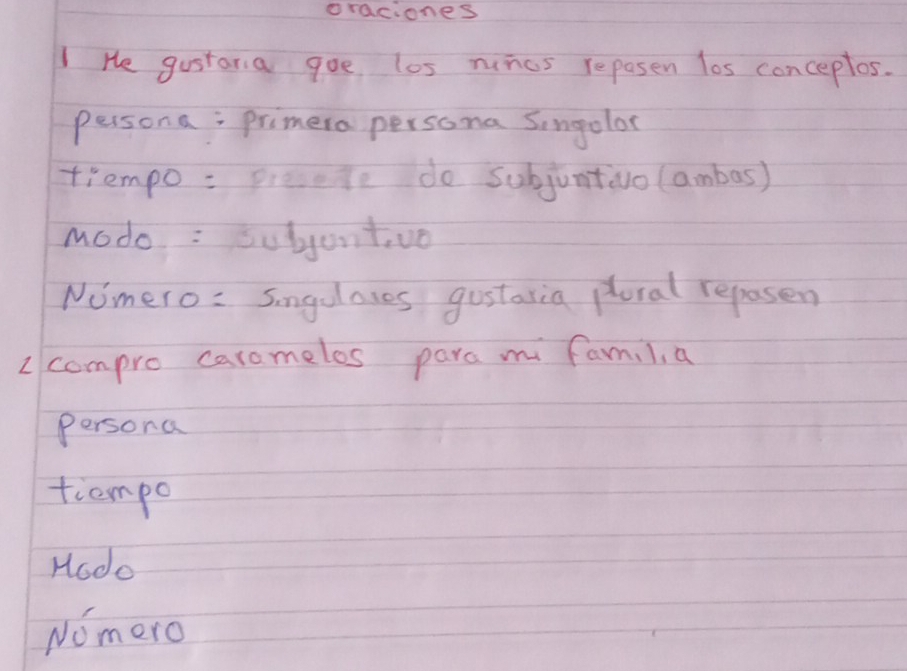 oraciones
1 Me gustaria que los niños repasen los conceptos.
persona: primera persona Singular
tiempo = presente de subjuntivo (ambos)
Modo = subjuntivo
Número = Singulares gustaria plural repasen
2 compro caramelos para mi familia
Persona
tiempo
Modo
Número